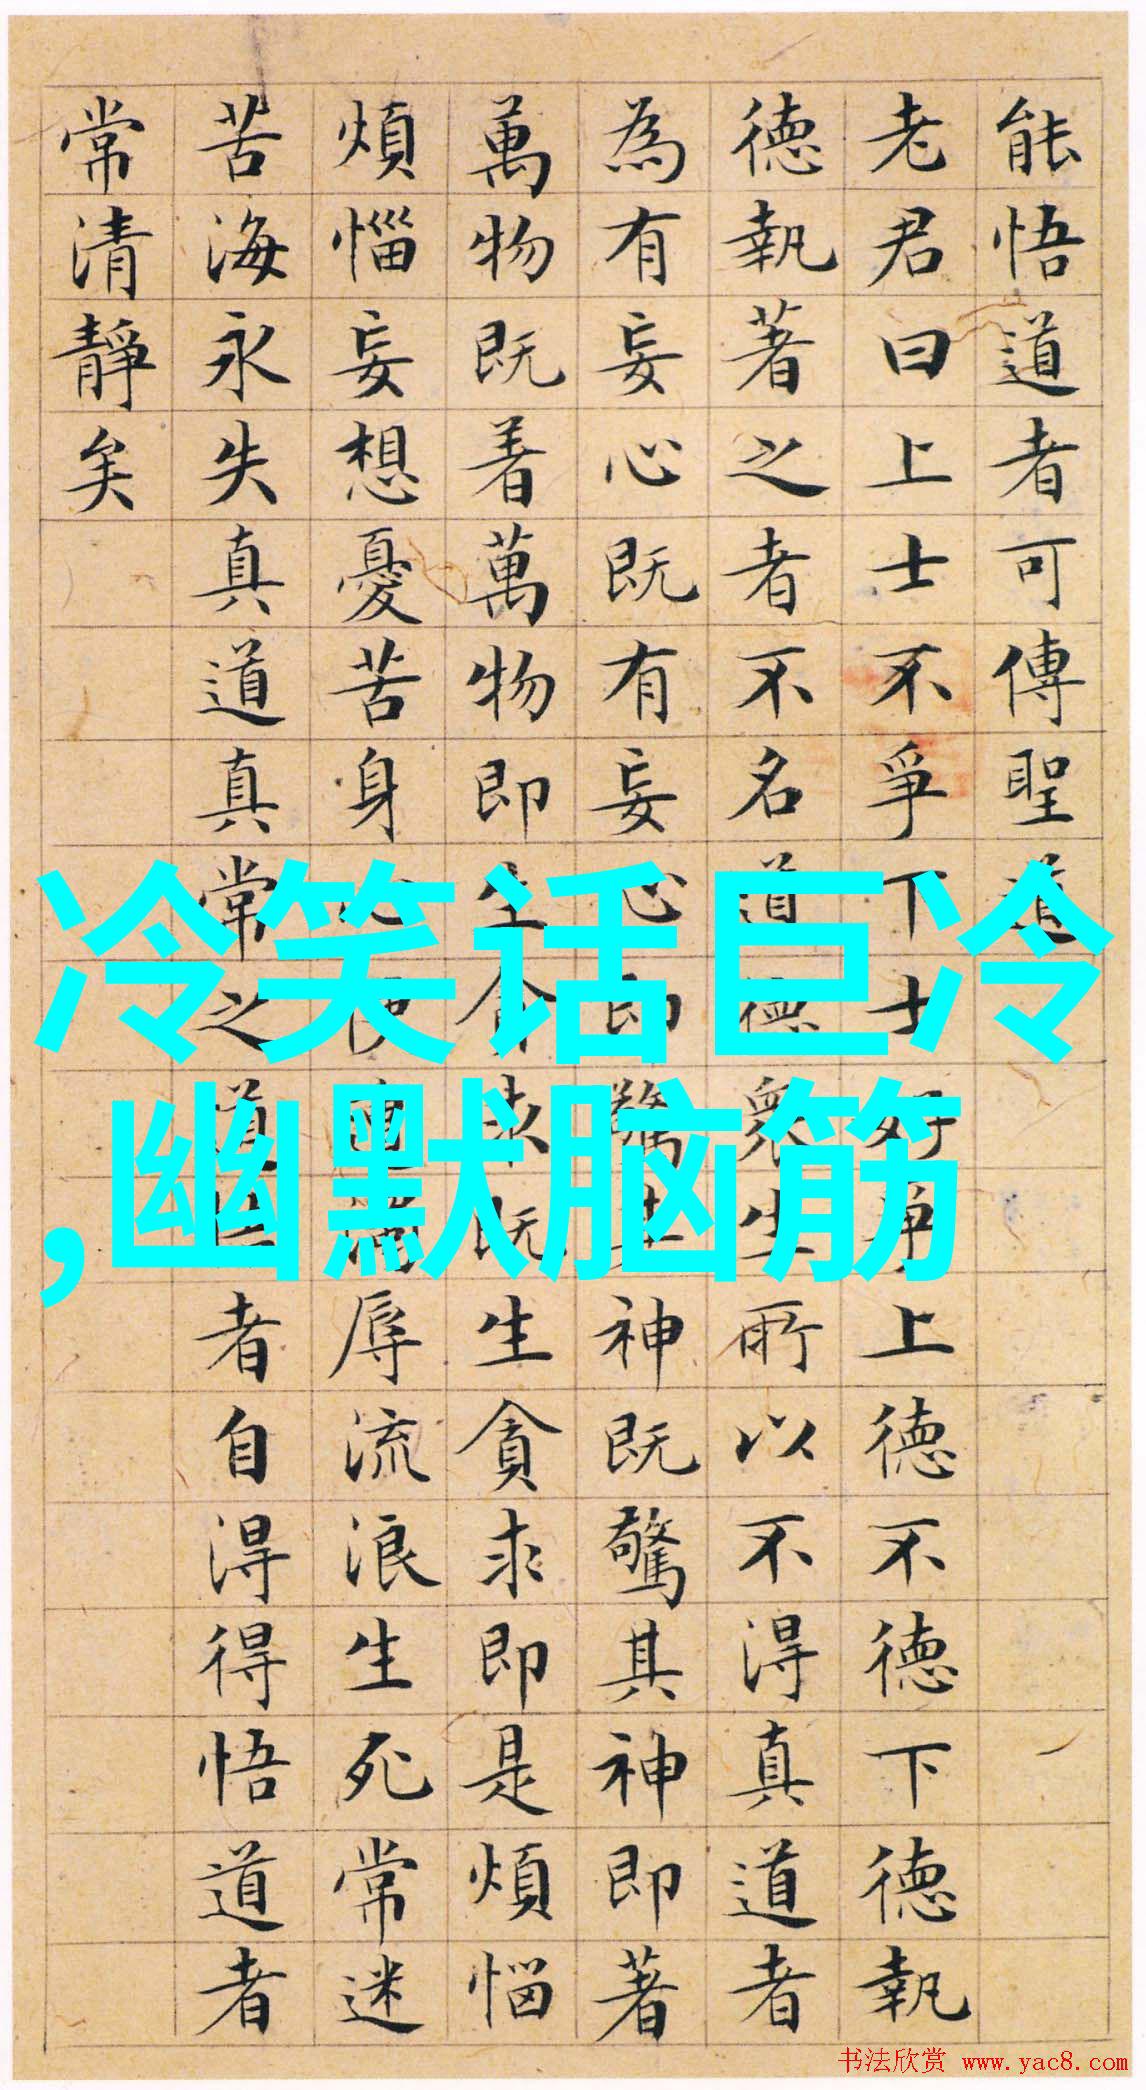 能悟道者可傳聖道
老君曰上士不爭下士好爭上德不德下德執
德執著之者不名道德眾生所以不得真道者
為有妄心既有妄心即驚其神既驚其神即著
萬物既着萬物即生貪求既生貪求即是煩惱
煩惱妄想憂苦身心便遭濁辱流浪生死常迷
苦海永失真道真常之道悟者自得得悟道者
常清靜矣
冷笑话巨冷
,幽默脑筋
书法欣赏 www.yac8.com